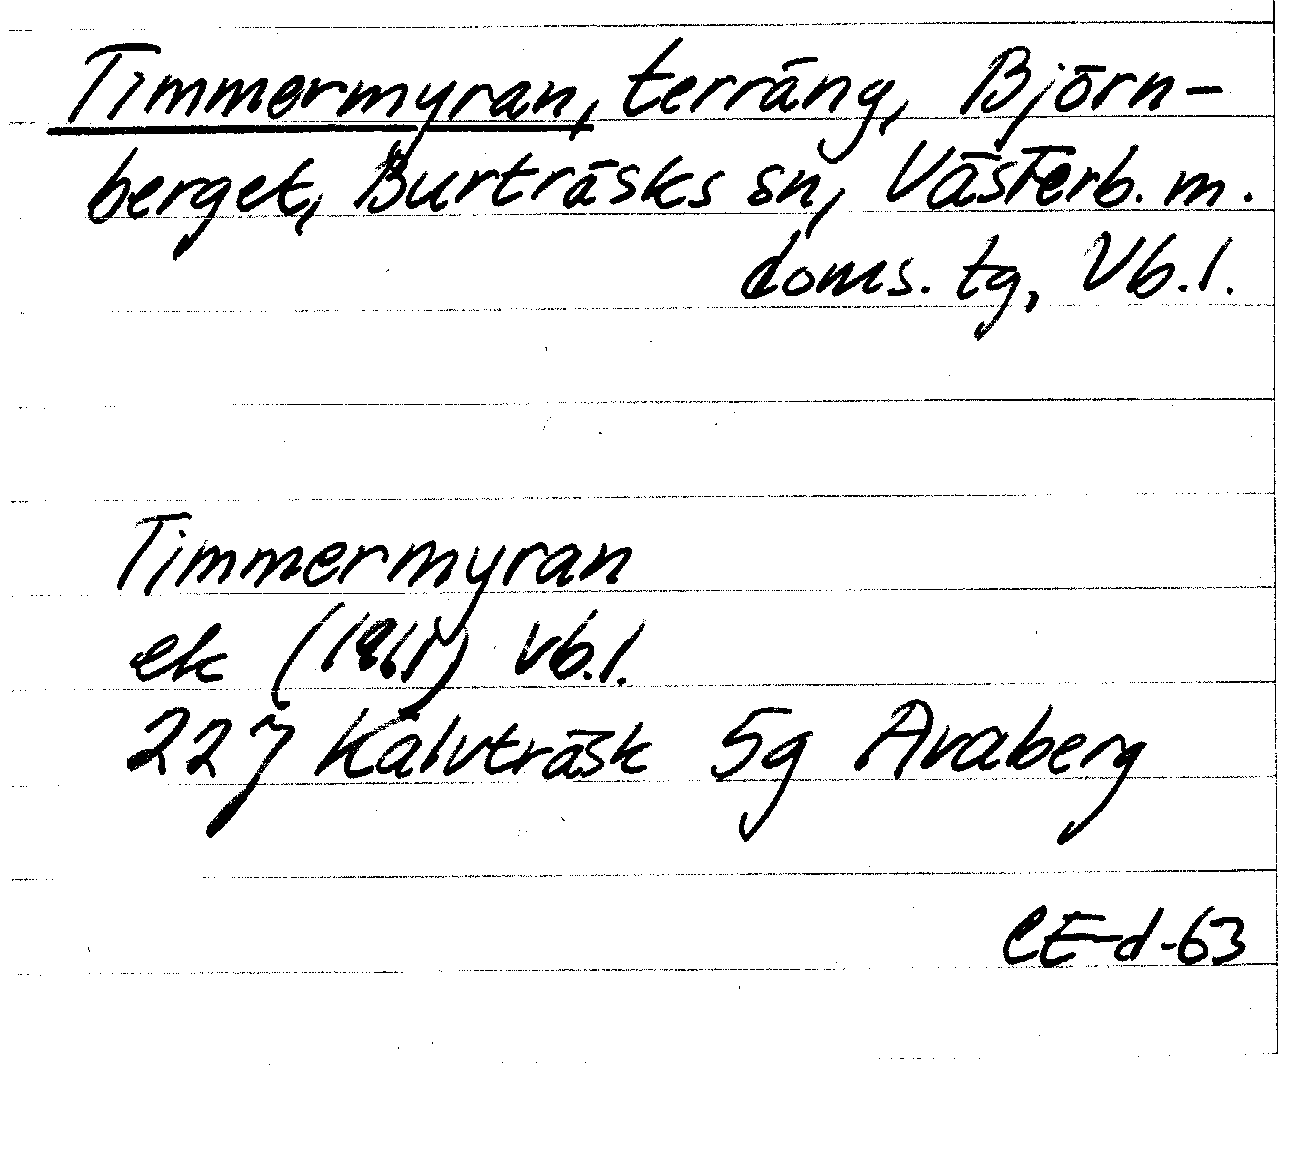 Timmermyran, terräng, Björn-
berget, Burträsks sn, Västerb. m.
doms. tg, Vb.l.
Timmermyran
ek (1961) Vb.l.
227 Kalvträsk 5g Avaberg
CE-d-63